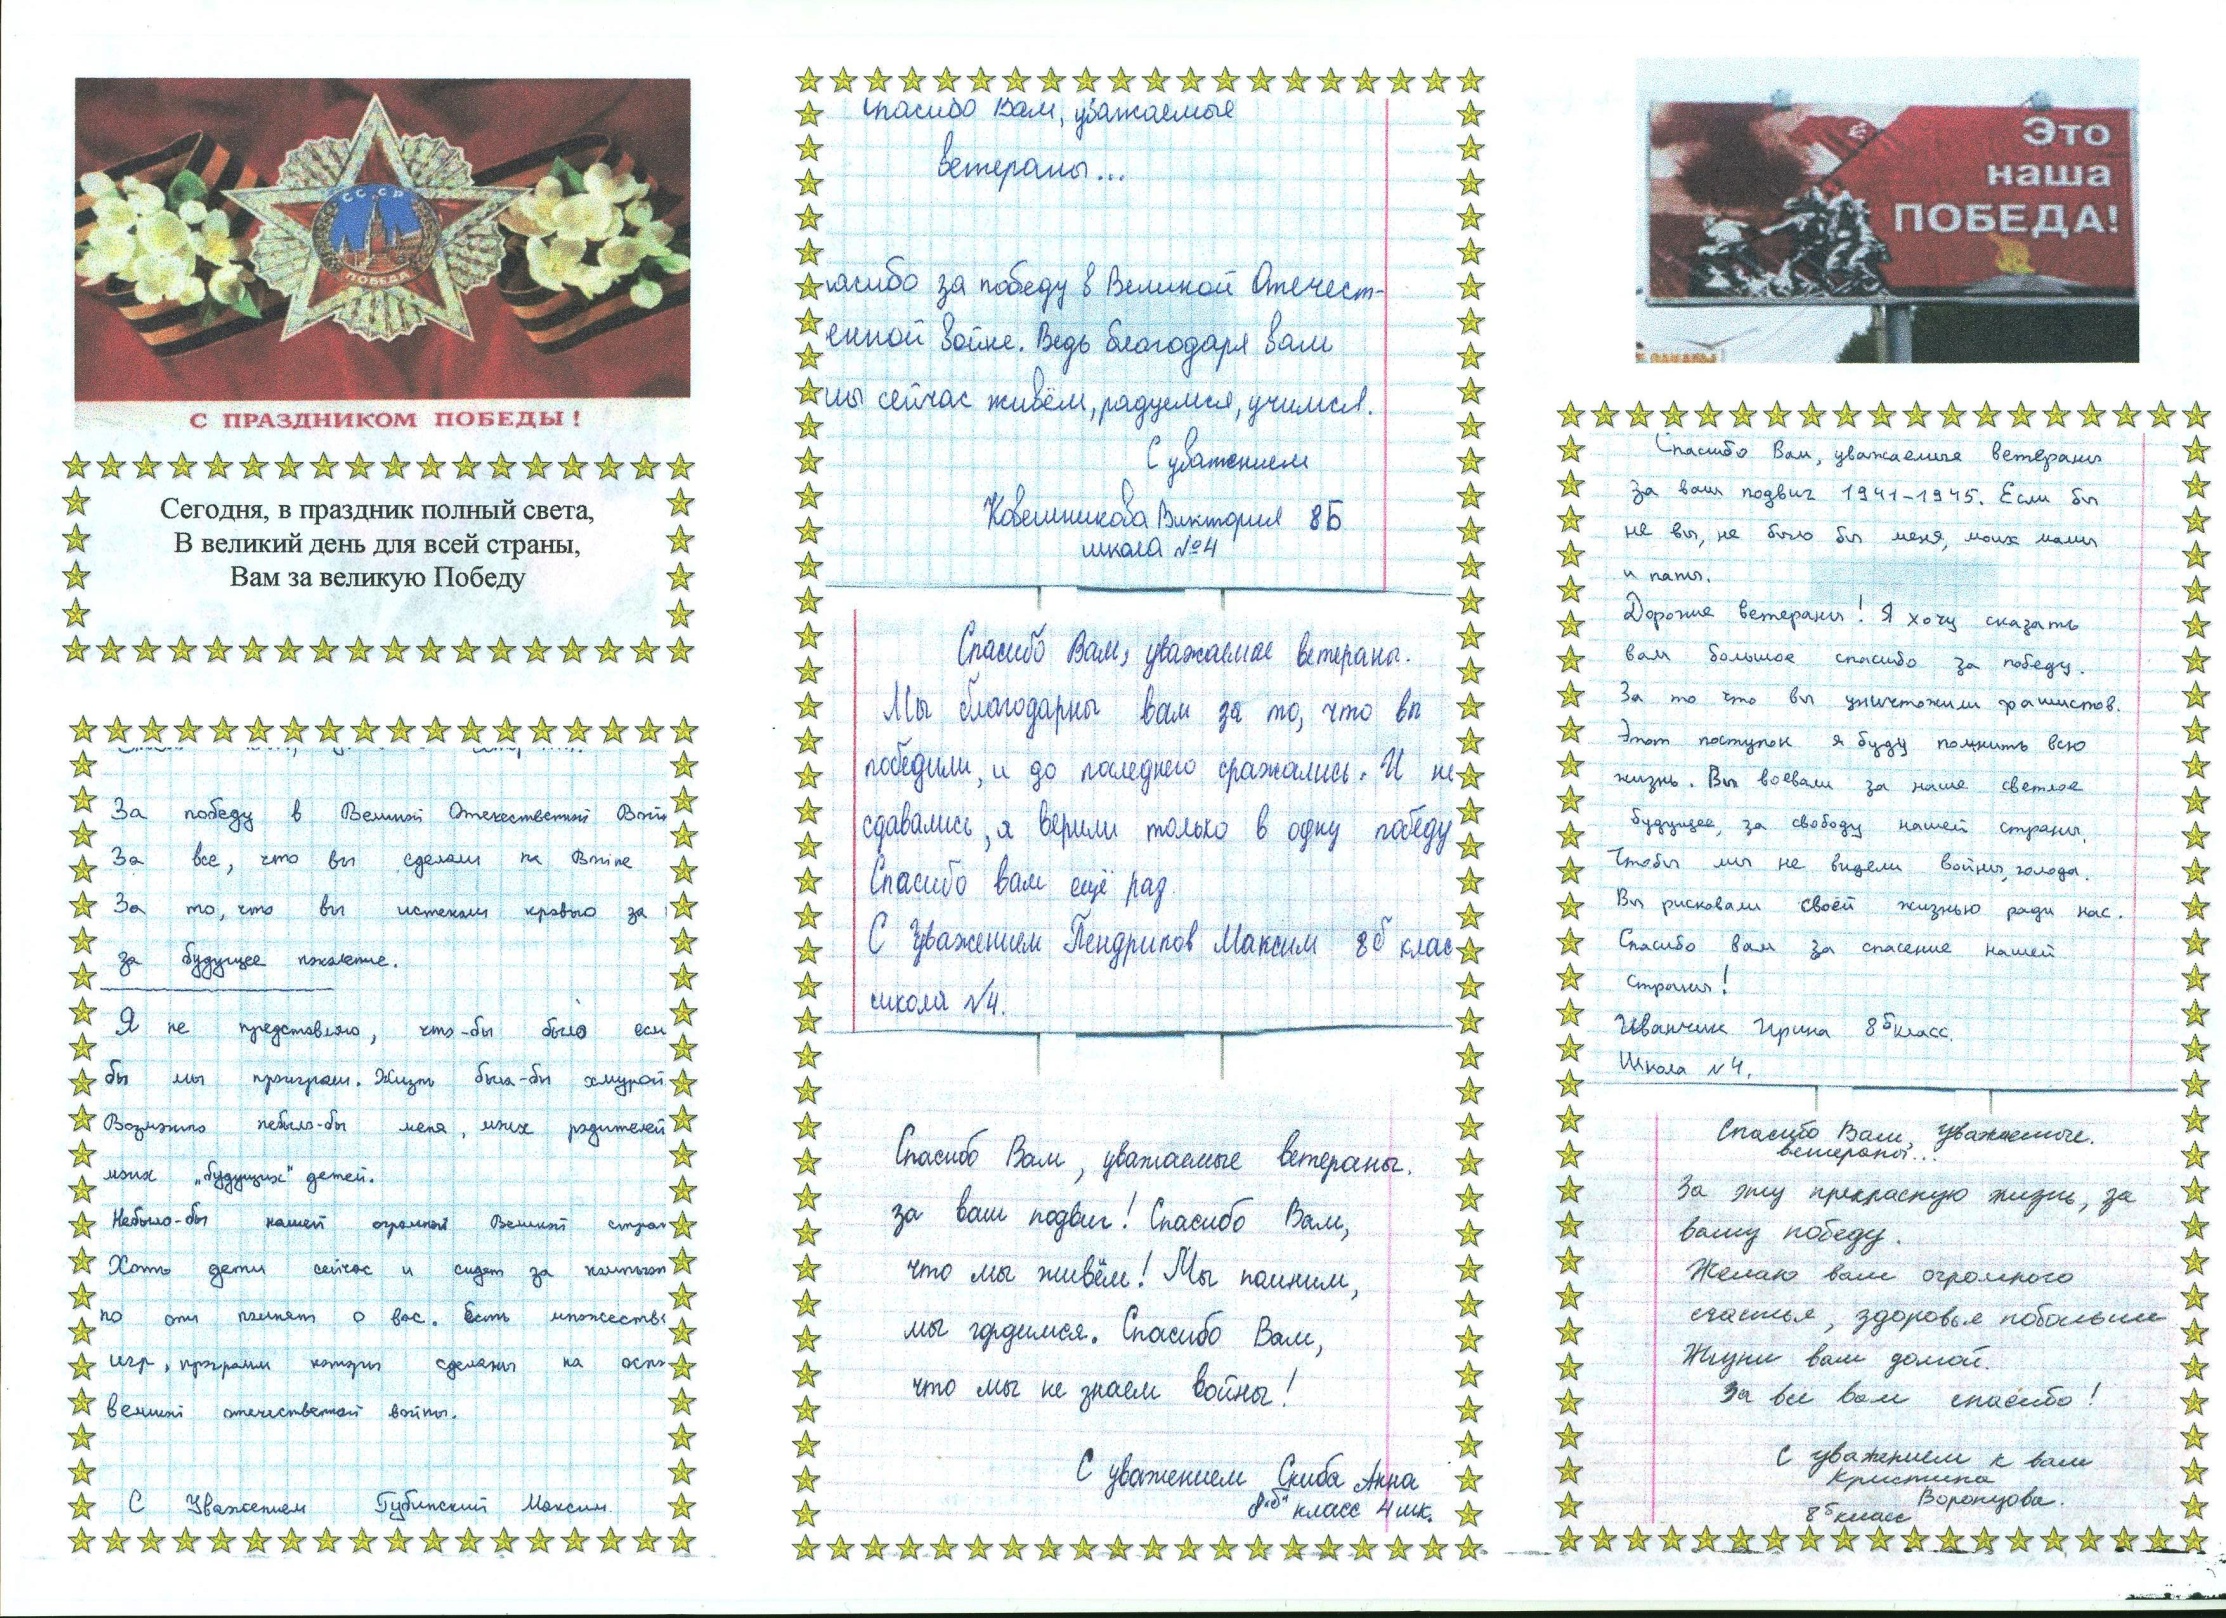 СССР
ПОБЕДА
С ПРАЗДНИКОМ ПОБЕДЫ!
Сегодня, в праздник полный света,
В великий день для всей страны,
Вам за великую Победу
За победу в Великой Отечественной Войн
За все, что вы сделали на Войне
За то, что вы истекали кровью за
за будущее поколение.
Я не представляю, что-бы было если
бы мы проиграли. Жизнь была-бы хмурой
Возможно небыло-бы меня, моих родителей
моих „будущих" детей.
Небыло-бы нашей огромной Великой стран
Хоть дети сейчас и сидят за компьют
но они помнят о вас. Есть множеств
игр, программ которые сделаны на осно
великой отечественной войны.
С Уважением Губинский Максим
Спасибо Вам, уважаемые
ветераны...
асибо за победу в Великой Отечест-
енной войне. Ведь благодаря вам
мы сейчас живём, радуемся, учимся.
С уважением
Ковешникова Виктория 8Б
школа №4
Спасибо Вам, уважаемые ветераны.
Мы благодарны вам за то, что вы
победили, и до последнего сражались. И не
сдавались, а верили только в одну победу
Спасибо вам ещё раз
С Уважением Пендрипов Максим 8б клас
школа №4.
Спасибо Вам, уважаемые ветераны.
за ваш подвиг! Спасибо Вам,
что мы живём! Мы помним,
мы гордимся. Спасибо Вам,
что мы не знаем войны!
С уважением Скиба Анна
8"б" класс 4 шк.
Это
наша
ПОБЕДА!
Спасибо Вам, уважаемые ветераны
за ваш подвиг 1941-1945. Если бы
не вы, не было бы меня, моих мамы
и папы.
Дорогие ветераны! Я хочу сказать
вам большое спасибо за победу.
За то что вы уничтожили фашистов.
Этот поступок я буду помнить всю
жизнь. Вы воевали за наше светлое
будущее, за свободу нашей страны.
Чтобы мы не видели войны, голода.
Вы рисковали своей жизнью ради нас.
Спасибо вам за спасение нашей
страны!
Иванчик Ирина 8б класс.
Школа №4.
Спасибо Вам, Уважаемые.
ветераны...
За эту прекрасную жизнь, за
вашу победу.
Желаю вам огромного
счастья, здоровья побольше
Жизни вам долгой.
За все вам спасибо!
С уважением к вам
Кристина
Воронцова.
8б класс